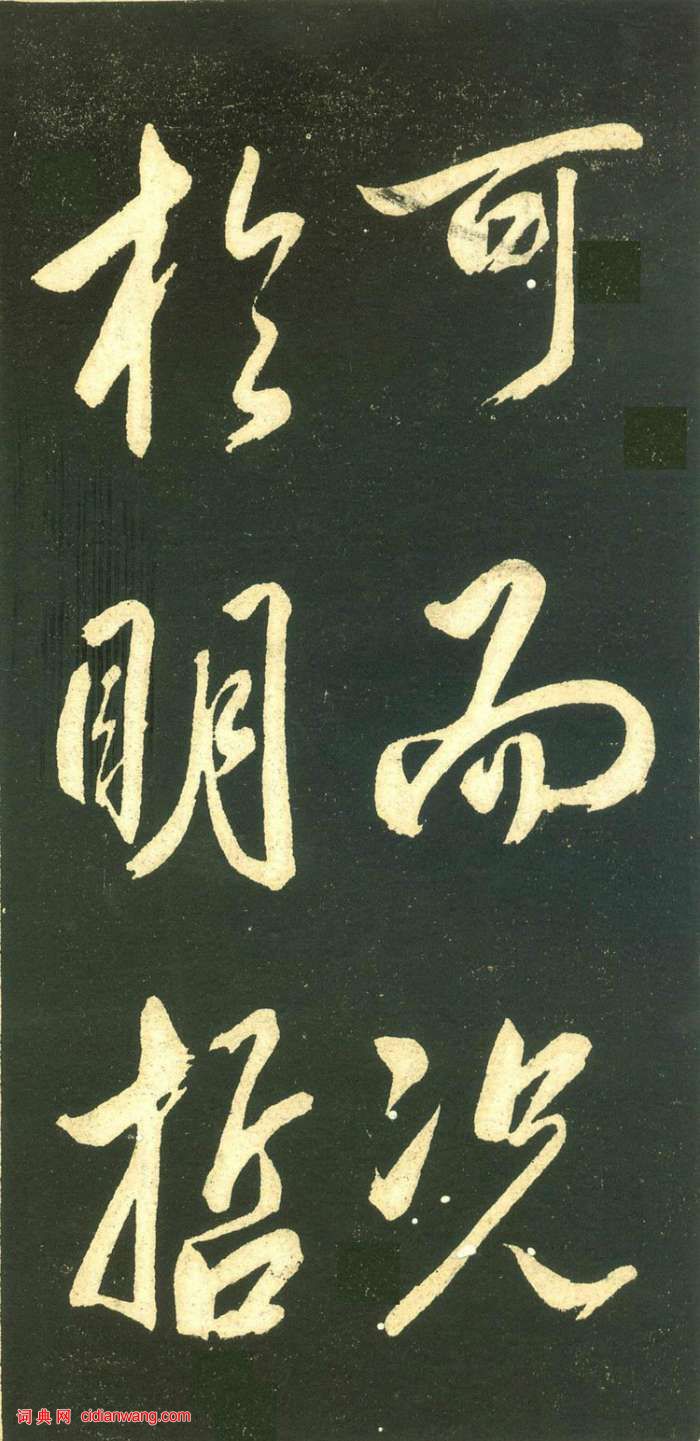 可而况
於明哲
词典网 cidianwang.com